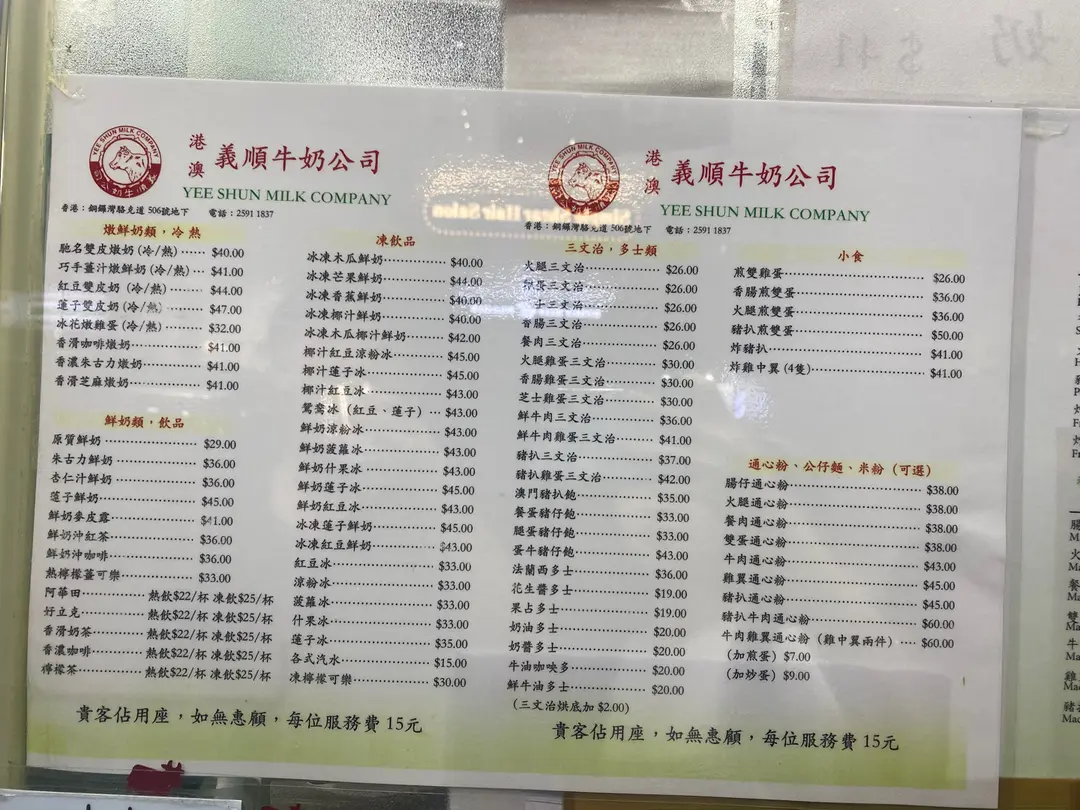 YEE SHUN MILK COMPANY
港澳 義順牛奶公司
YEE SHUN MILK COMPANY
香港：銅鑼灣駱克道 506號地下 電話：2591 1837
燉鮮奶類，冷熱
馳名雙皮燉奶(冷/熱) $40.00
巧手薑汁燉鮮奶(冷/熱) $41.00
紅豆雙皮奶(冷/熱) $44.00
蓮子雙皮奶(冷/熱) $47.00
冰花燉雞蛋(冷/熱) $32.00
香滑咖啡燉奶 $41.00
香濃朱古力燉奶 $41.00
香滑芝麻燉奶 $41.00
鮮奶類，飲品
原質鮮奶 $29.00
朱古力鮮奶 $36.00
杏仁汁鮮奶 $36.00
蓮子鮮奶 $45.00
鮮奶麥皮露 $41.00
鮮奶沖紅茶 $36.00
鮮奶沖咖啡 $36.00
熱檸檬薑可樂 $33.00
阿華田 熱飲$22/杯 凍飲$25/杯
好立克 熱飲$22/杯 凍飲$25/杯
香滑奶茶 熱飲$22/杯 凍飲$25/杯
香濃咖啡 熱飲$22/杯 凍飲$25/杯
檸檬茶 熱飲$22/杯 凍飲$25/杯
凍飲品
冰凍木瓜鮮奶 $40.00
冰凍芒果鮮奶 $44.00
冰凍香蕉鮮奶 $40.00
冰凍椰汁鮮奶 $40.00
冰凍木瓜椰汁鮮奶 $42.00
椰汁紅豆涼粉冰 $45.00
椰汁蓮子冰 $45.00
椰汁紅豆冰 $43.00
鴛鴦冰（紅豆、蓮子） $43.00
鮮奶涼粉冰 $43.00
鮮奶菠蘿冰 $43.00
鮮奶什果冰 $43.00
鮮奶蓮子冰 $45.00
鮮奶紅豆冰 $43.00
冰凍蓮子鮮奶 $45.00
冰凍紅豆鮮奶 $43.00
紅豆冰 $33.00
涼粉冰 $33.00
菠蘿冰 $33.00
什果冰 $33.00
蓮子冰 $35.00
各式汽水 $15.00
凍檸檬可樂 $30.00
貴客佔用座，如無惠顧，每位服務費 15元
YEE SHUN MILK COMPANY
港澳 義順牛奶公司
YEE SHUN MILK COMPANY
香港：銅鑼灣駱克道 506號地下 電話：2591 1837
三文治，多士類
火腿三文治 $26.00
蛋三文治 $26.00
士三文治 $26.00
香腸三文治 $26.00
餐肉三文治 $26.00
火腿雞蛋三文治 $30.00
香腸雞蛋三文治 $30.00
芝士雞蛋三文治 $30.00
鮮牛肉三文治 $36.00
鮮牛肉雞蛋三文治 $41.00
豬扒三文治 $37.00
豬扒雞蛋三文治 $42.00
澳門豬扒飽 $35.00
餐蛋豬仔飽 $33.00
腿蛋豬仔飽 $33.00
蛋牛豬仔飽 $43.00
法蘭西多士 $36.00
花生醬多士 $19.00
果占多士 $19.00
奶油多士 $20.00
奶醬多士 $20.00
牛油咖央多 $20.00
鮮牛油多士 $20.00
(三文治烘底加 $2.00)
小食
煎雙雞蛋 $26.00
香腸煎雙蛋 $36.00
火腿煎雙蛋 $36.00
豬扒煎雙蛋 $50.00
炸豬扒 $41.00
炸雞中翼(4隻) $41.00
通心粉、公仔麵、米粉（可選）
腸仔通心粉 $38.00
火腿通心粉 $38.00
餐肉通心粉 $38.00
雙蛋通心粉 $38.00
牛肉通心粉 $43.00
雞翼通心粉 $45.00
豬扒通心粉 $45.00
豬扒牛肉通心粉 $60.00
牛肉雞翼通心粉（雞中翼兩件） $60.00
(加煎蛋) $7.00
(加炒蛋) $9.00
貴客佔用座，如無惠顧，每位服務費 15元